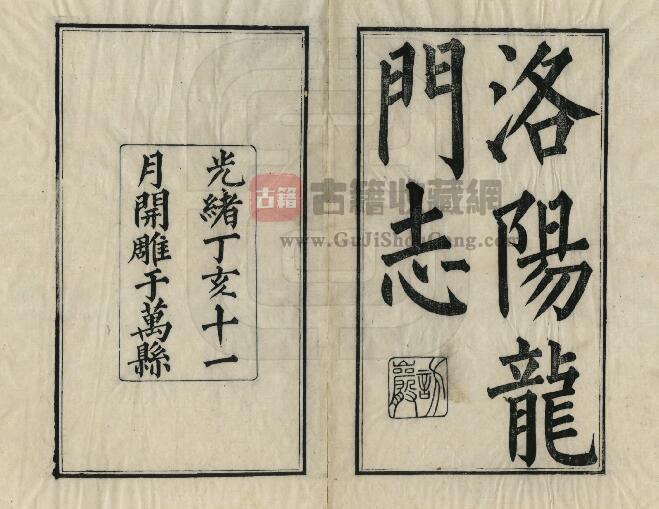 洛陽龍
門志
光緒丁亥十一
月開雕于萬縣
古籍
古籍收藏網
www.GuJiShouCang.com